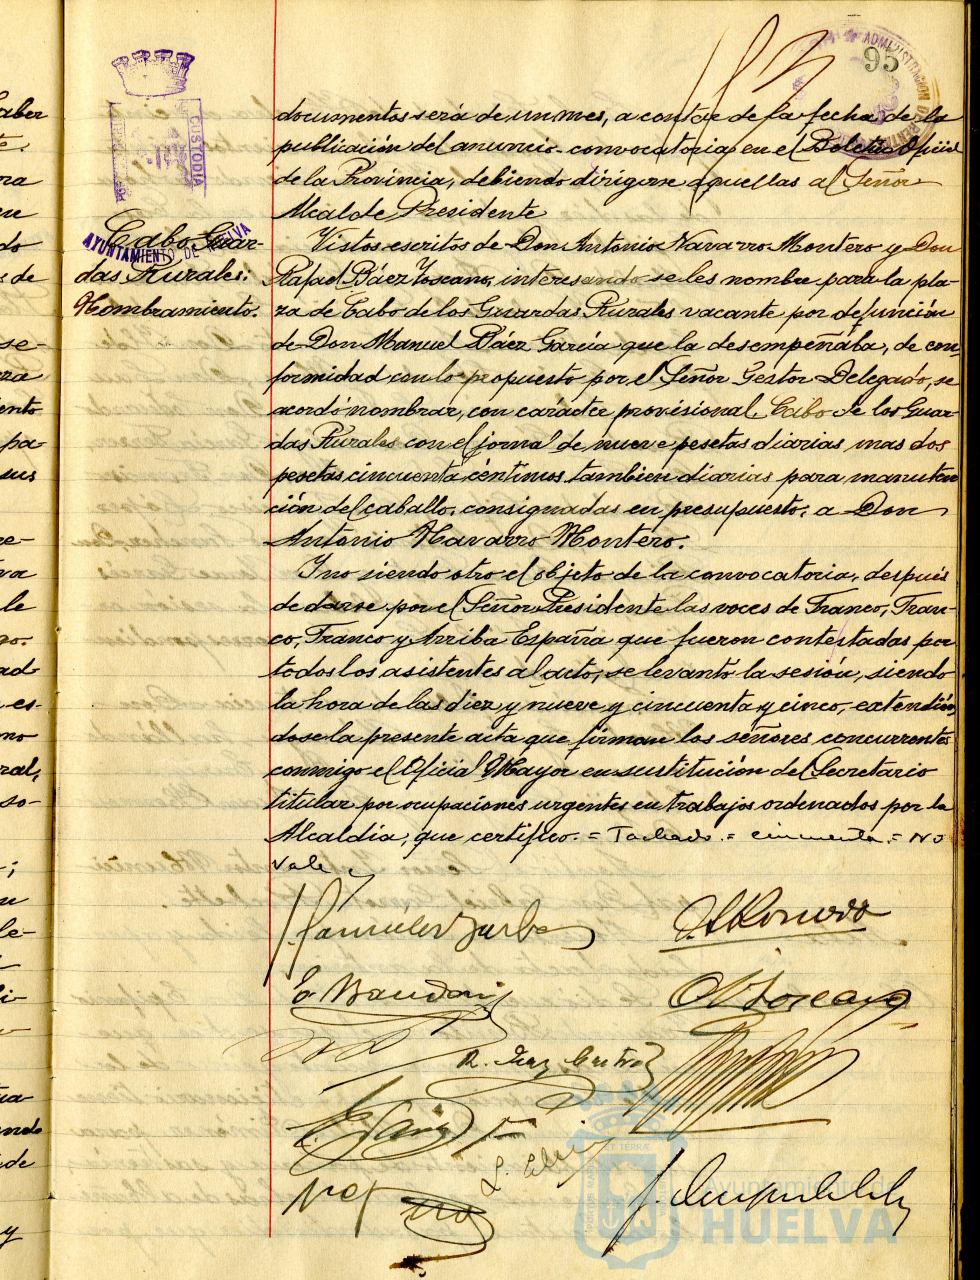 95
ADMINISTRACIÓN DE RENTAS
CUSTODIA
AYUNTAMIENTO DE HUELVA
documentos será de un mes, a contar de la fecha de la
publicación del anuncio-convocatoria en el Boletín Oficial
de la Provincia, debiendo dirigirse aquellas al Señor
Alcalde Presidente
Cabo Guar-
das Rurales.
Nombramiento.
Vistos escritos de Don Antonio Navarro Montero y Don
Rafael Báez Toscano, interesando se les nombre para la pla-
za de Cabo de los Guardas Rurales vacante por defunción
de Don Manuel Báez García que la desempeñaba, de con-
formidad con lo propuesto por el Señor Gestor Delegado, se
acordó nombrar, con carácter provisional, Cabo de los Guar-
das Rurales con el jornal de nueve pesetas diarias mas dos
pesetas cincuenta céntimos tambien diarias para manuten-
ción del caballo, consignadas en presupuesto, a Don
Antonio Navarro Montero.
Y no siendo otro el objeto de la convocatoria, después
de darse por el Señor Presidente las voces de Franco, Fran-
co, Franco y Arriba España que fueron contestadas por
todos los asistentes al acto, se levantó la sesión, siendo
la hora de las diez y nueve y cincuenta y cinco, extendién-
dose la presente acta que firman los señores concurrentes
conmigo el Oficial Mayor en sustitución del Secretario
titular por ocupaciones urgentes en trabajos ordenados por la
Alcaldía, que certifico. = Tachado. = cincuenta. = No
vale
Ayuntamiento de
HUELVA